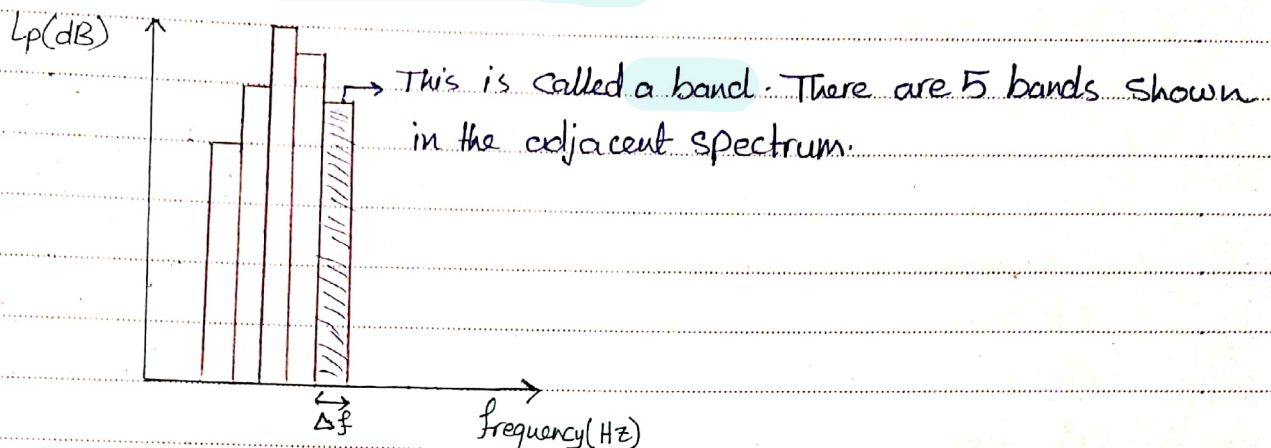 Lp(dB)
This is called a band. There are 5 bands shown
in the adjacent spectrum.
Δf
frequency(Hz)